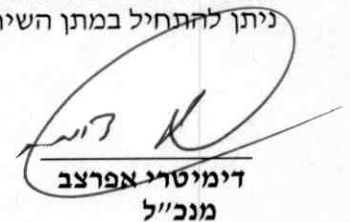 ניתן להתחיל במתן
דימיטרי אפרצב
מנכ״ל